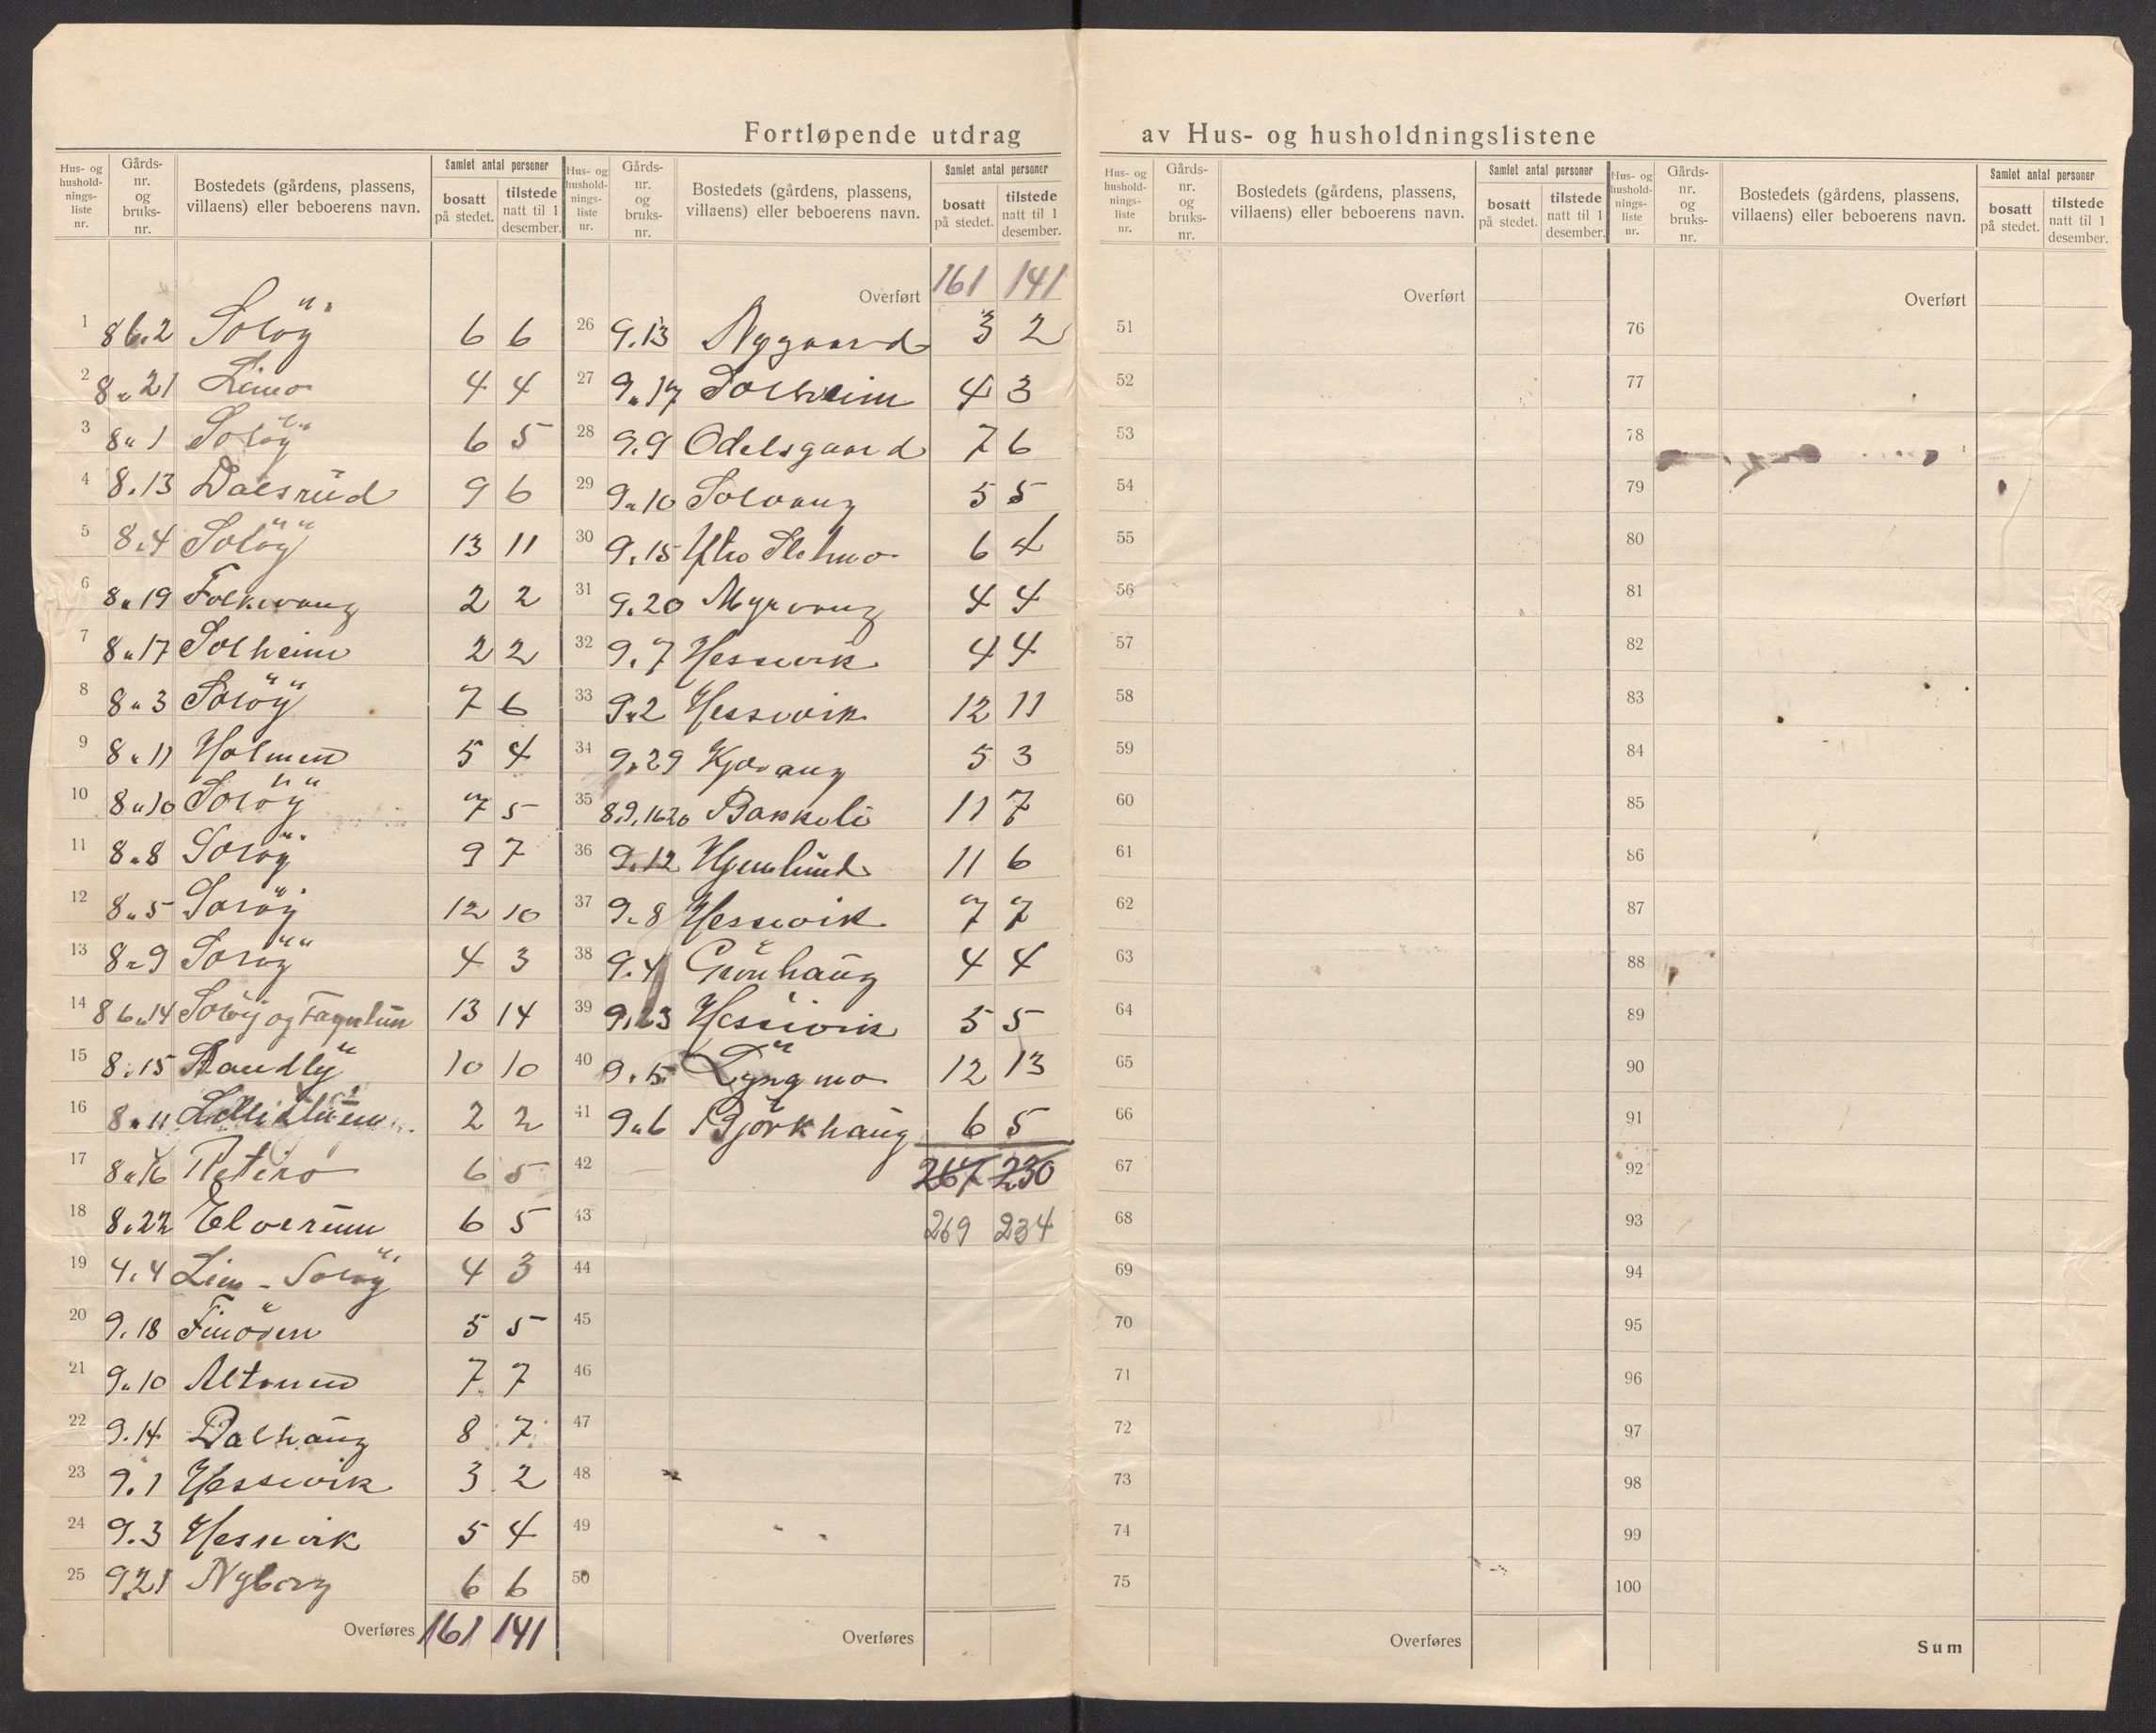 Fortløpende utdrag av Hus- og husholdningslistene
Hus- og hushold-nings-liste nr. Gårds-nr. og bruks-nr. Bostedets (gårdens, plassens, villaens) eller beboerens navn. Samlet antal personer bosatt på stedet. tilstede natt til 1 desember.
1 8 6.2 Soløy 6 6
2 8.21 Limo 4 4
3 8.1 Soløy 6 5
4 8.13 Dalsrud 9 6
5 8.4 Soløy 13 11
6 8.19 Folkvang 2 2
7 8.17 Solheim 2 2
8 8.3 Soløy 7 6
9 8.11 Holmen 5 4
10 8.10 Soløy 7 5
11 8.8 Soløy 9 7
12 8.5 Soløy 12 10
13 8.9 Soløy 4 3
14 8 6.14 Soløy og Fagerlun 13 14
15 8.15 Strandly 10 10
16 8.11 2 2
17 8.16 Retiro 6 5
18 8.22 Elverum 6 5
19 4.4 Lien - Soløy 4 3
20 9.18 Finösen 5 5
21 9.10 5 7 7
22 9.14 Dalhaug 8 7
23 9.1 Hessevik 3 2
24 9.3 Hessevik 5 4
25 9.21 Nyborg 6 6
Overføres 161 141
Hus- og hushold-nings-liste nr. Gårds-nr. og bruks-nr. Bostedets (gårdens, plassens, villaens) eller beboerens navn. Samlet antal personer bosatt på stedet. tilstede natt til 1 desember.
Overført 161 141
26 9.13 Nygaard 3 2
27 9.17 Solheim 4 3
28 9.9 Odelsgaard 7 6
29 9.10 Solvang 5 5
30 9.15 Ytre Sletmo 6 4
31 9.20 Myrvang 4 4
32 9.7 Hessevik 4 4
33 9.2 Hessevik 12 11
34 9.29 5 3
35 8.9.1620 Bakkeli 11 7
36 9.12 Hjemlund 11 6
37 9.8 Hessevik 7 7
38 9.4 Grönhaug 4 4
39 Hessevik 5 5
40 9.5 Lyngmo 12 13
41 9.6 Björkhaug 6 5
42 267 230
43 269 234
44
45
46
47
48
49
50
Overføres
Hus- og hushold-nings-liste nr. Gårds-nr. og bruks-nr. Bostedets (gårdens, plassens, villaens) eller beboerens navn. Samlet antal personer bosatt på stedet. tilstede natt til 1 desember.
Overført
51
52
53
54
55
56
57
58
59
60
61
62
63
64
65
66
67
68
69
70
71
72
73
74
75
Overføres
Hus- og hushold-nings-liste nr. Gårds-nr. og bruks-nr. Bostedets (gårdens, plassens, villaens) eller beboerens navn. Samlet antal personer bosatt på stedet. tilstede natt til 1 desember.
Overført
76
77
78
79
80
81
82
83
84
85
86
87
88
89
90
91
92
93
94
95
96
97
98
99
100
Sum